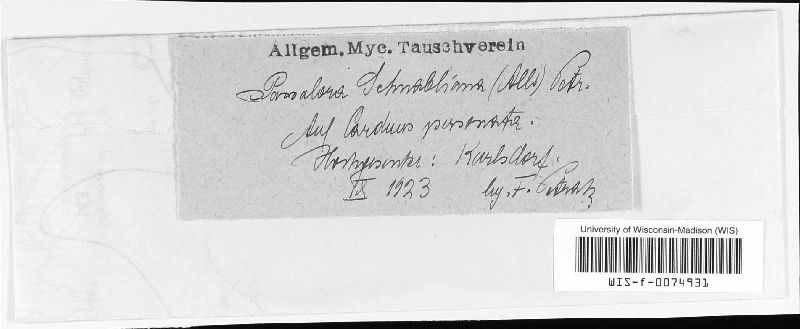 Allgem. Myc. Tauschverein
Passalora Schnabliana (All.) Petr.
Auf Carduus personata.
Hochgesenke: Karlsdorf.
IX 1923 leg. F. Petrak
University of Wisconsin-Madison (WIS)
WIS-f-0074931